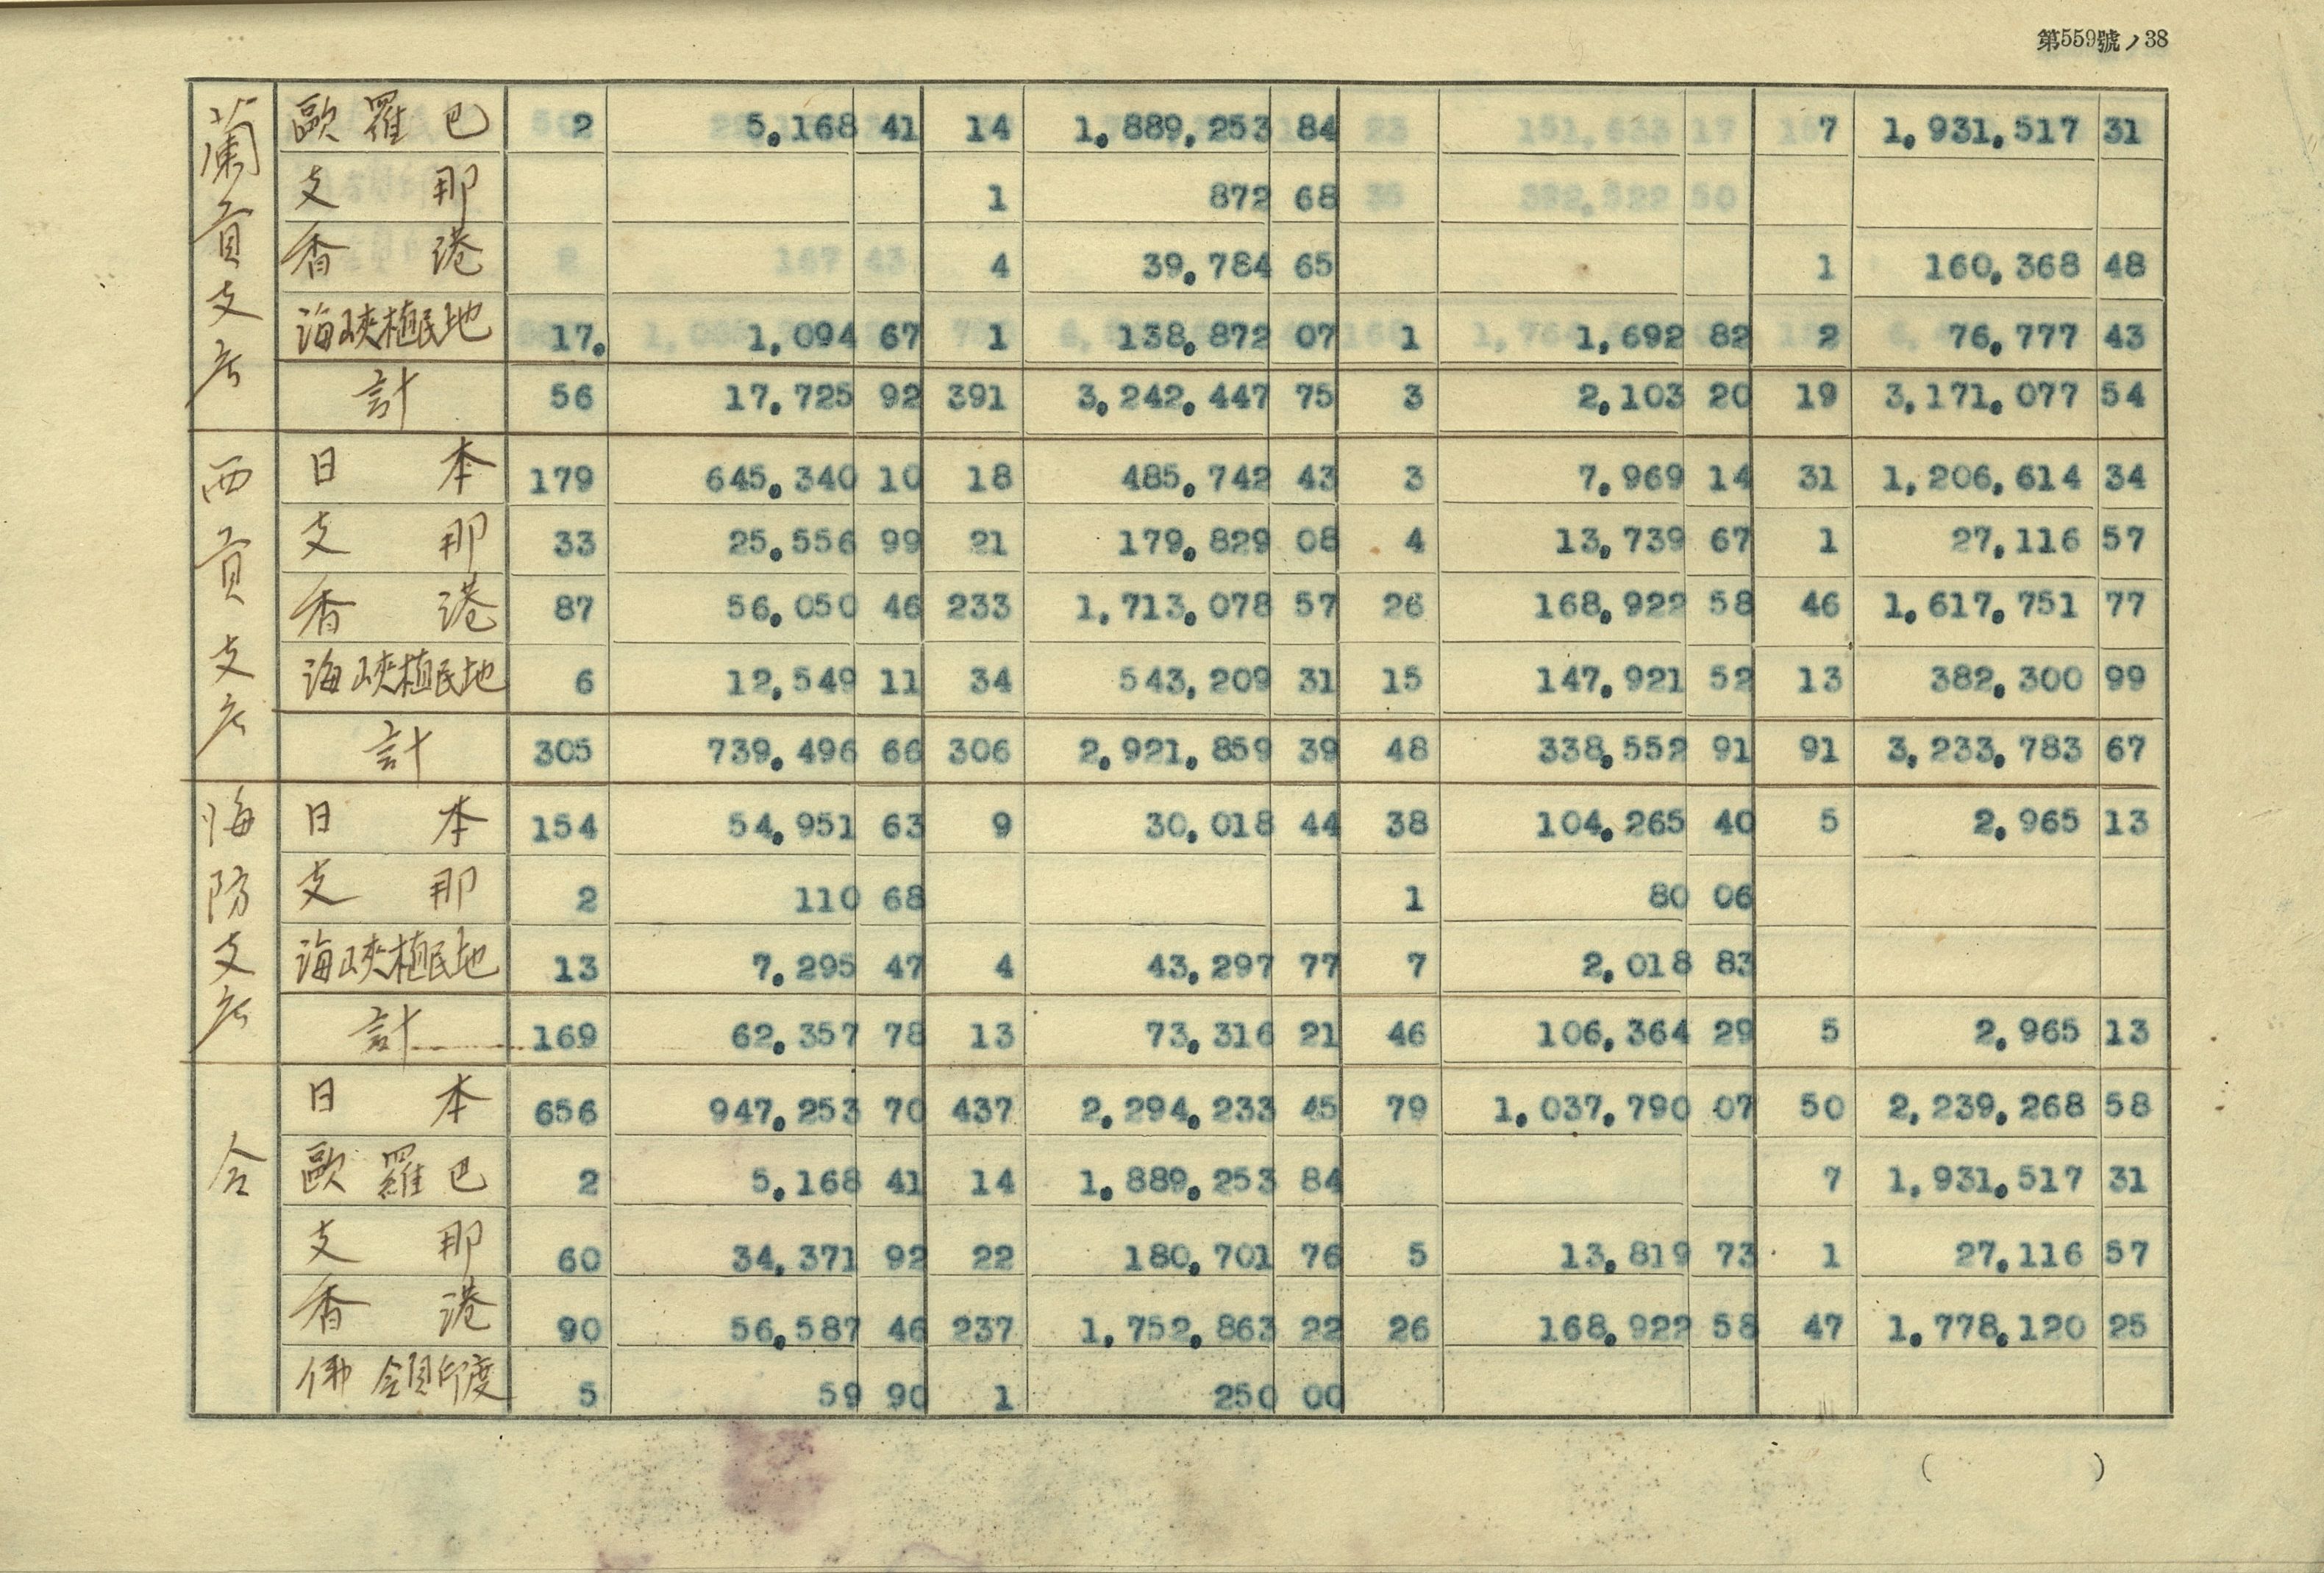 第559號ノ38
蘭貢支店
歐羅巴 2 5,168 41 14 1,889,253 84 7 1,931,517 31
支那 1 872 68
香港 4 39,784 65 1 160,368 48
海峽植民地 17. 1,094 67 1 138,872 07 1 1,692 82 2 76,777 43
計 56 17,725 92 391 3,242,447 75 3 2,103 20 19 3,171,077 54
西貢支店
日本 179 645,340 10 18 485,742 43 3 7,969 14 31 1,206,614 34
支那 33 25,556 99 21 179,829 08 4 13,739 67 1 27,116 57
香港 87 56,050 46 233 1,713,078 57 26 168,922 58 46 1,617,751 77
海峽植民地 6 12,549 11 34 543,209 31 15 147,921 52 13 382,300 99
計 305 739,496 66 306 2,921,859 39 48 338,552 91 91 3,233,783 67
海防支店
日本 154 54,951 63 9 30,018 44 38 104,265 40 5 2,965 13
支那 2 110 68 1 80 06
海峽植民地 13 7,295 47 4 43,297 77 7 2,018 83
計 169 62,357 78 13 73,316 21 46 106,364 29 5 2,965 13
合
日本 656 947,253 70 437 2,294,233 45 79 1,037,790 07 50 2,239,268 58
歐羅巴 2 5,168 41 14 1,889,253 84 7 1,931,517 31
支那 60 34,371 92 22 180,701 76 5 13,819 73 1 27,116 57
香港 90 56,587 46 237 1,752,863 22 26 168,922 58 47 1,778,120 25
佛領印度 5 59 90 1 250 00
( )